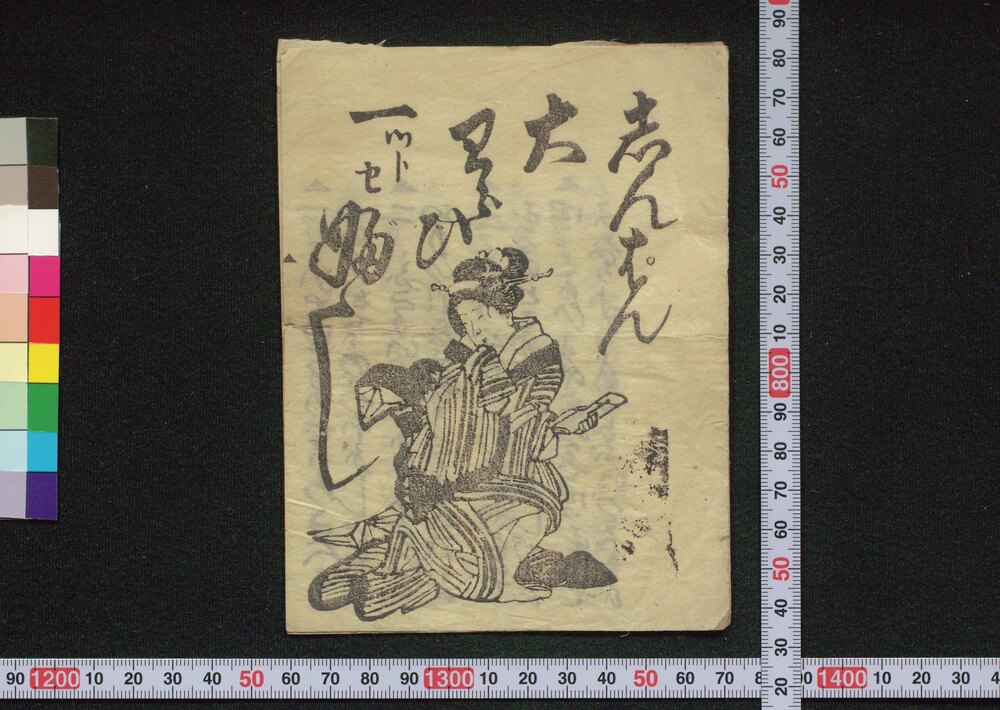 志んぱん
大
わらひ
一ツトセぶし
90 80 70 60 50 40 30 20 10 800 90 80 70 60 50 40 30 20
90 1200 10 20 30 40 50 60 70 80 90 1300 10 20 30 40 50 60 70 1400 10 20 30